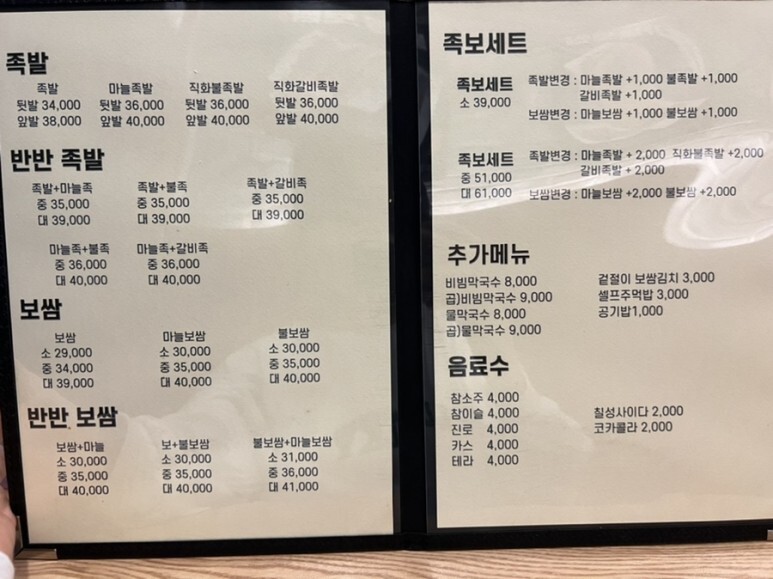 족발
족발 마늘족발 직화불족발 직화갈비족발
뒷발 34,000 뒷발 36,000 뒷발 36,000 뒷발 36,000
앞발 38,000 앞발 40,000 앞발 40,000 앞발 40,000
반반 족발
족발+마늘족 족발+불족 족발+갈비족
중 35,000 중 35,000 중 35,000
대 39,000 대 39,000 대 39,000
마늘족+불족 마늘족+갈비족
중 36,000 중 36,000
대 40,000 대 40,000
보쌈
보쌈 마늘보쌈 불보쌈
소 29,000 소 30,000 소 30,000
중 34,000 중 35,000 중 35,000
대 39,000 대 40,000 대 40,000
반반 보쌈
보쌈+마늘 보+불보쌈 불보쌈+마늘보쌈
소 30,000 소 30,000 소 31,000
중 35,000 중 35,000 중 36,000
대 40,000 대 40,000 대 41,000
족보세트
족보세트 족발변경 : 마늘족발 +1,000 불족발 +1,000
소 39,000 갈비족발 +1,000
보쌈변경 : 마늘보쌈 +1,000 불보쌈 +1,000
족보세트 족발변경 : 마늘족발 + 2,000 직화불족발 +2,000
중 51,000 갈비족발 + 2,000
대 61,000 보쌈변경 : 마늘보쌈 +2,000 불보쌈 +2,000
추가메뉴
비빔막국수 8,000 겉절이 보쌈김치 3,000
곱)비빔막국수 9,000 셀프주먹밥 3,000
물막국수 8,000 공기밥1,000
곱)물막국수 9,000
음료수
참소주 4,000
참이슬 4,000 칠성사이다 2,000
진로 4,000 코카콜라 2,000
카스 4,000
테라 4,000